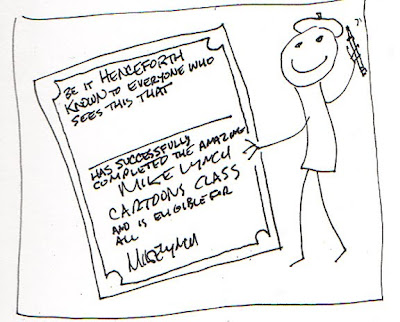 BE IT HENCEFORTH
KNOWN TO EVERYONE WHO
SEES THIS THAT
HAS SUCCESSFULLY
COMPLETED THE AMAZING
MIKE LYNCH
CARTOONS CLASS
AND IS ELIGIBLE FOR
ALL
MIKE LYNCH